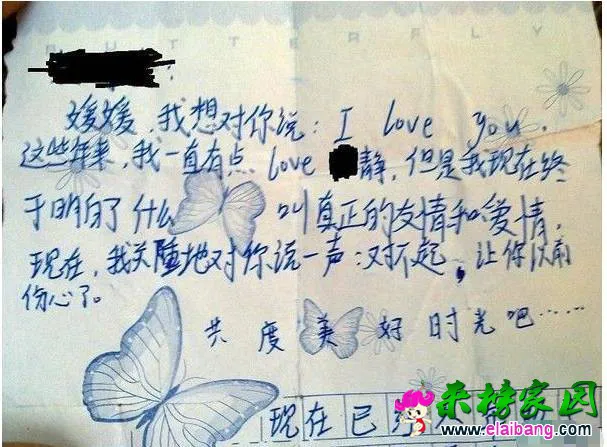 BUTTERFLY
媛媛，我想对你说：I love you.
这些年来，我一直有点 love 静，但是我现在终
于明白了什么叫真正的友情和爱情，
现在，我地对你说一声：对不起，让你以前
伤心了。
共度美好时光吧……
现在已
来榜家园
www.elaibang.com